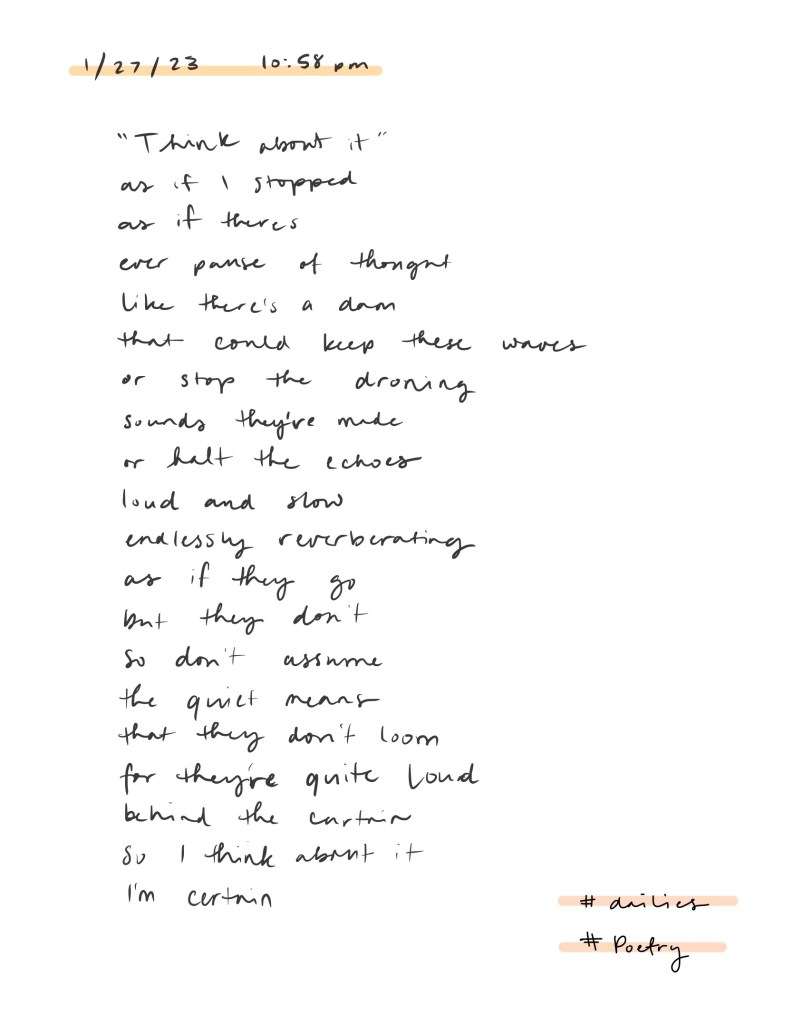 1/27/23 10:58 pm
"Think about it"
as if I stopped
as if theres
ever pause of thought
like there's a dam
that could keep these waves
or stop the droning
sounds they're made
or halt the echoes
loud and slow
endlessly reverberating
as if they go
but they don't
so don't assume
the quiet means
that they don't loom
for they're quite loud
behind the curtain
so I think about it
I'm certain
# dailies
# Poetry